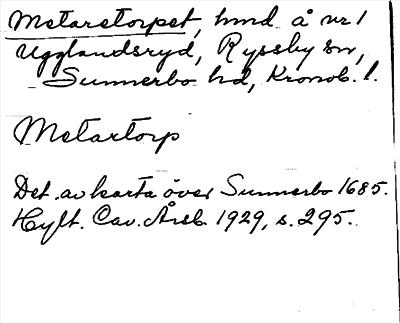 Metaretorpet, hmd å nr 1
Ugglandsryd, Ryssby sn,
Sunnerbo hd, Kronob. l.
Metartorp
Det. av karta över Sunnerbo 1685.
Hylt. Cav. Årsb. 1929, s. 295.